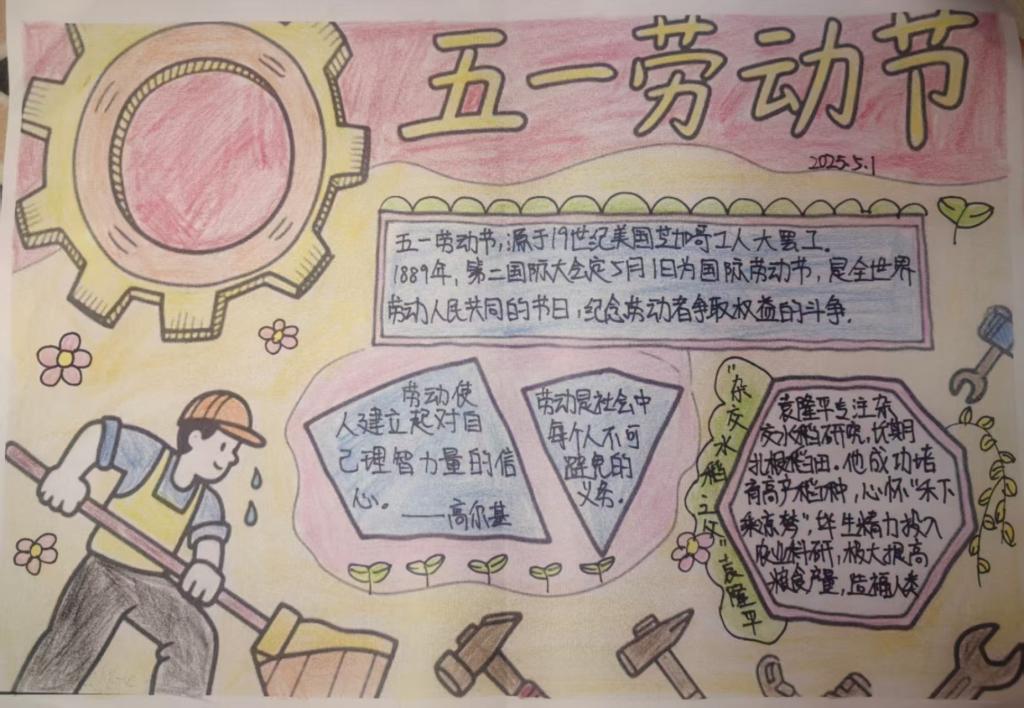 五一劳动节
2025.5.1
五一劳动节,源于19世纪美国芝加哥工人大罢工.
1889年,第二国际大会定5月1日为国际劳动节,是全世界
劳动人民共同的节日,纪念劳动者争取权益的斗争.
劳动使
人建立起对自
己理智力量的信
心。
——高尔基
劳动是社会中
每个人不可
避免的
义务.
"杂交水稻之父"袁隆平
袁隆平专注杂
交水稻研究,长期
扎根稻田.他成功培
育高产稻种,心怀"禾下
乘凉梦"毕生精力投入
农业科研,极大提高
粮食产量,造福人类